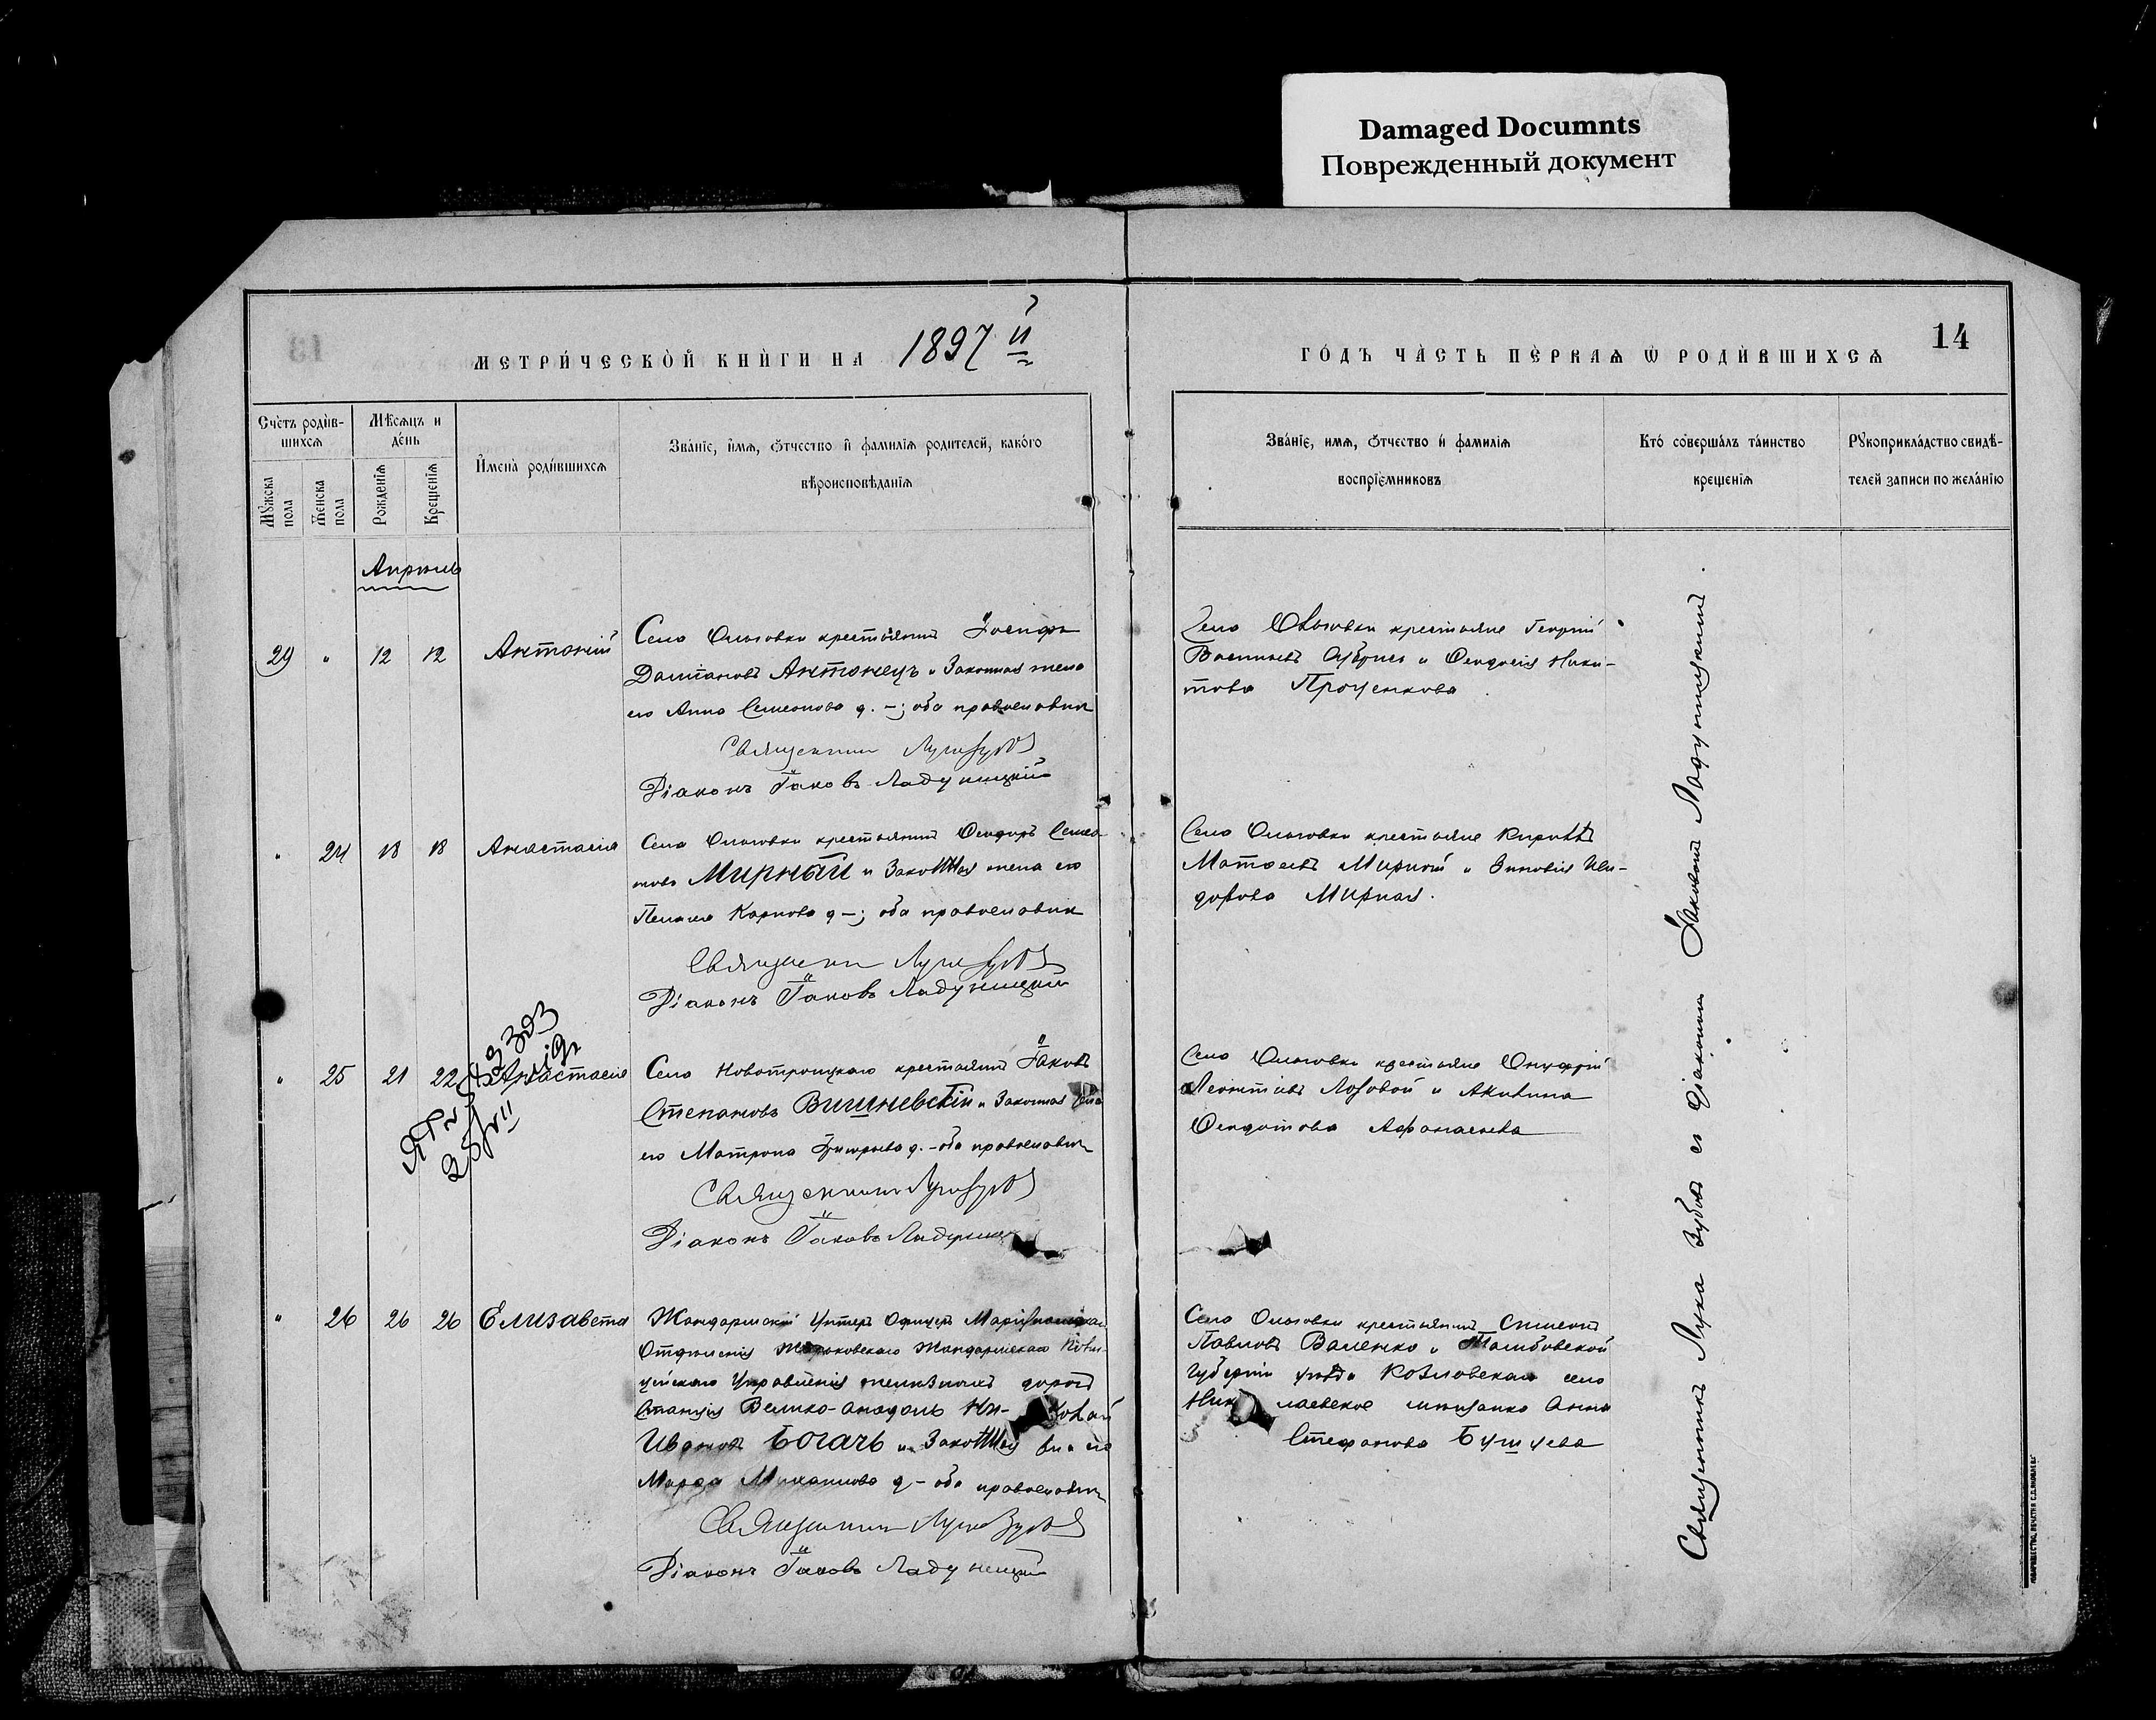 Damaged Documnts
Поврежденный документ
14
МЕТРИ́ЧЕСКОЙ КНИ́ГИ НА 1897 й
ГО́ДЪ ЧА́СТЬ ПЕ́РВАѦ Ѡ РОДИ́ВШИХСѦ
Сче́тъ роди́в-
шихсѧ
Мѣ́сѧцъ и
де́нь
Мꙋ́жска
пола
Же́нска
пола
Рожденїѧ
Крещенїѧ
И҆мена̀ роди́вшихсѧ
Зва́нїе, и҆́мѧ, ѻ҆́тчество и҆ фами́лїѧ роди́телей, како́го
вѣроисповѣ́данїѧ
Зва́нїе, имѧ, ѻ҆́тчество и҆ фамилїѧ
воспрїе́мниковъ
Кто́ соверша́лъ та́инство
креще́нїѧ
Рꙋкоприкла́дство свидѣ́-
телей записи по жела́нїю
Апрѣль
29 " 12 12 Антоній
Село Ольговки крестьянинъ Іосифъ
Антонецъ и Законная жена
его Анна Семеонова д. –; оба православн
Священникъ Лука Зубовъ
Діаконъ Іаковъ Ладуницкій
Село Ольговки крестьяне Георгій
Васильевъ и Феодосія Ники-
това Проценкова
" 24 18 18 Анастасія
Село Ольговки крестьянинъ Феодоръ Семео
новъ Мирный и Законная жена его
Пелагея Карпова д –; оба православн
Священникъ Лука Зубовъ
Діаконъ Іаковъ Ладуницкій
Село Ольговки крестьяне Кириллъ
Матѳеевъ Мирной и Зиновія Иси-
дорова Мирная.
" 25 21 22 Анастасія
Село Новотроицкаго крестьянинъ Іаковъ
Степановъ Вишневскій и Законная жена
его Матрона Григорьева д. – оба православн
Священникъ Лука Зубовъ
Діаконъ Іаковъ Ладуниц
Село Ольговки крестьяне Онуфрій
Леонтіевъ Лозовой и Акилина
Феодотова Афанасьева
" 26 26 26 Елизавета
Жандармскій Унтеръ Офицеръ Маріупольскаго
Отдѣленія Харьковскаго Жандармскаго Поли-
цейскаго Управленія желѣзныхъ дорогъ
Станція Велико-Анадоль Ни-
Ивановъ Богачъ и Законная жена его
Марфа Михаилова д – оба православн
Священникъ Лука Зубовъ
Діаконъ Іаковъ Ладуницкій
Село Ольговки крестьянинъ Симеонъ
Павловъ Валенко и Тамбовской
губерніи уѣзда Козловскаго село
Ник лаевское мѣщанка Анна
Стефанова Бушуева
Священникъ Лука Зубовъ съ діакономъ Іаковомъ Ладуницкимъ.